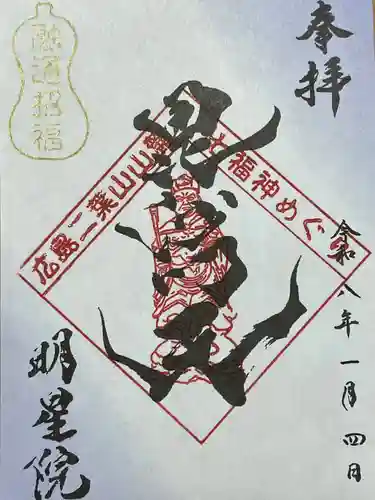 奉拝
令和八年一月四日
毘沙門天
広島二葉山山麓
七福神めぐり
融通招福
明星院